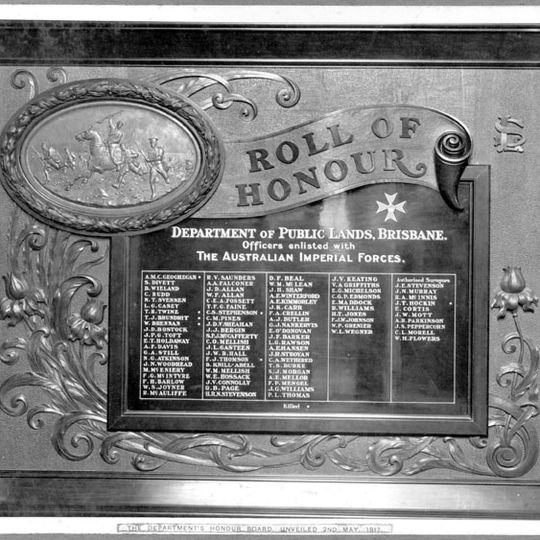 ROLL OF
HONOUR
DEPARTMENT OF PUBLIC LANDS, BRISBANE.
Officers enlisted with
THE AUSTRALIAN IMPERIAL FORCES.
A.M.C. GEOGHEGAN
S. DIVETT
D. WIELAND
C. BUDD
N.T. SVENSEN
L.G. CASEY
T.B. TWINE
T.J. BRUNDRIT
W. BRENNAN
J.D. ROSTOCK
A.P.G. TOFT
E.T. HOLDAWAY
A.P. DAVIS
G.A. STILL
H.G. ATKINSON
J.N. WOODHEAD
M. McENIERY
F.G. McINTYRE
F.H. BARLOW
W.S. JOYNER
R. McAULIFFE
R.V. SAUNDERS
A.A. FALCONER
J.D. ALLAN
W.F. ALLAN
C.E.A. FOSSETT
T.F.G. FAINE
C.S. STEPHENSON
C.M. PINES
J.D.F. SHEAHAN
J.J. BERGIN
S.P.J. McGUINITY
C.D. MELLISH
J.L. GASTEEN
J.W.B. HALL
E.J. THOMSON
B. KNILL-ABELL
W.M. MELLISH
W.E. HOSSACK
J.V. CONNOLLY
G.B. PAGE
H.R.N. STEVENSON
D.F. BEAL
W.M. McLEAN
J.H. SHAW
A.F. WINTERFORD
A.E. KIMMORLEY
J.S. CARR
F.A. CRELLIN
A.J. BUTLER
G.J. SANKERVIS
E. O'DONOVAN
J.F. BARKER
L.G. RAWSON
A.E. HANSEN
J.H. STROYAN
C.A. WETHERED
T.S. BURKE
S.J. MORGAN
A.E. MELLOR
F.P. MENGEL
J.G. WILLIAMS
P.L. THOMAS
J.V. KEATING
V.A. GRIFFITHS
E.G. MICHELSON
C.G.P. EDMONDS
E. MADDOCK
R. WILLIAMS
H.T. JONES
F.J.W. JOHNSON
W.P. GRENIER
W.L. WEGNER
Authorised Surveyors
J.E. STEVENSON
J.N. MURRAY
R.A. McINNIS
J.T. HOCKIN
E. CURTIS
J.W. MOTT
H.R. PARKINSON
J.S. PEPPERCORN
C.L. MORELL
W.H. FLOWERS
Killed
THE DEPARTMENT'S HONOUR BOARD. UNVEILED 2ND MAY, 1917.